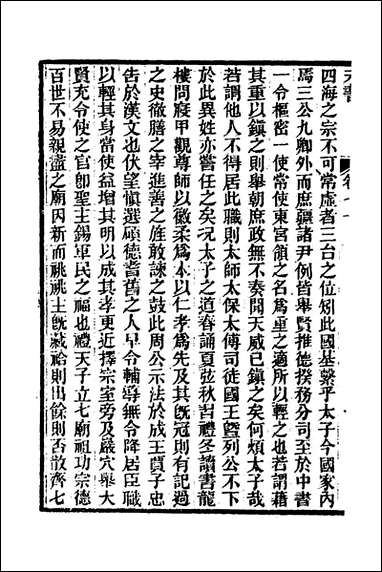 元書
卷七十
四海之宗不可常虛者三台之位矧此國基繫乎太子今國家內
焉三公九卿外而庶疆諸尹例皆舉賢推德揆務分司至於中書
一令樞密一使常使東宮領之名爲重之適所以輕之也若謂藉
其重以鎮之則舉朝庶政無不奏聞天威已鎮之矣何煩太子哉
若謂他人不得居此職則太師太保太傅司徒國王暨列公不下
於此異姓亦嘗任之矣況太子之道春誦夏弦秋習禮冬讀書龍
樓問寢甲觀尊師以徽柔爲本以仁孝爲先及其旣冠則有記過
之史徹膳之宰進善之旌敢諫之鼓此周公示法於成王賈子忠
告於漢文也伏望愼選碩德耆舊之人早令輔導無令降居臣職
以輕其身當使益增其明以成其孝更近擇宗室旁及巖穴舉大
賢充令使之官卽聖主錫軍民之福也禮天子立七廟祖功宗德
百世不易親盡之廟因新而祧祧主旣藏祫則出餘則否散齊七